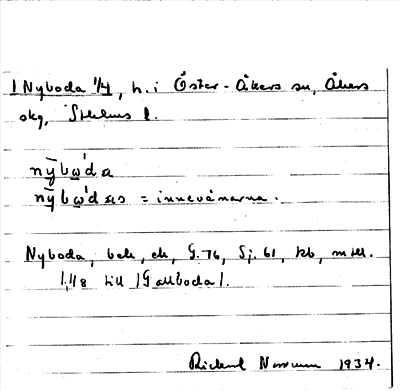 1 Nyboda 1/4, h. i Öster-Åkers sn, Åkers
skg, Sthlms l.
nȳbω'da
nȳbω'das = innevånarna.
Nyboda, beb, ek, G. 76, Sj. 61, kb, mtl.
1/8 till |Gallboda|.
Rickard 1934.